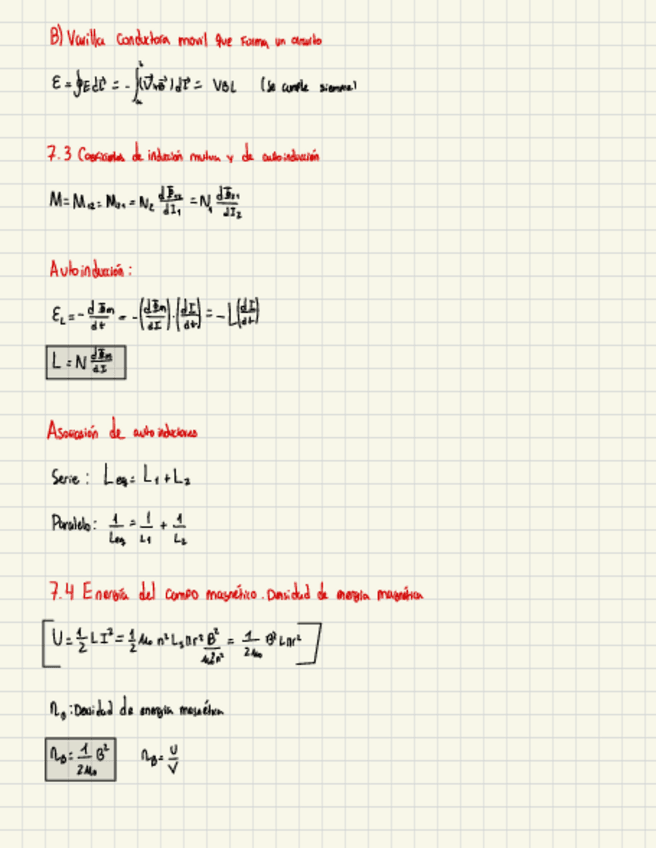 B) Varilla conductora movil que forma un circuito
ε = ∮E dl = - ∫(v⃗×B⃗)dl⃗ = VBL (se cumple siempre)
7.3 Coeficientes de inducción mutua y de autoinducción
M = M₁₂ = M₂₁ = N₂ dΦ₁₂/dI₁ = N₁ dΦ₂₁/dI₂
Autoinducción:
ε_L = - dΦm/dt = -(dΦm/dI)·(dI/dt) = -L(dI/dt)
L = N dΦm/dI
Asociación de autoinductores
Serie: Leq = L₁ + L₂
Paralelo: 1/Leq = 1/L₁ + 1/L₂
7.4 Energía del campo magnético. Densidad de energía magnética
U = 1/2 L I² = 1/2 μ₀ n² L πr² B²/μ₀²n² = 1/2μ₀ B² Lπr²
η_B: Densidad de energía magnética
η_B = 1/2μ₀ B² η_B = U/V